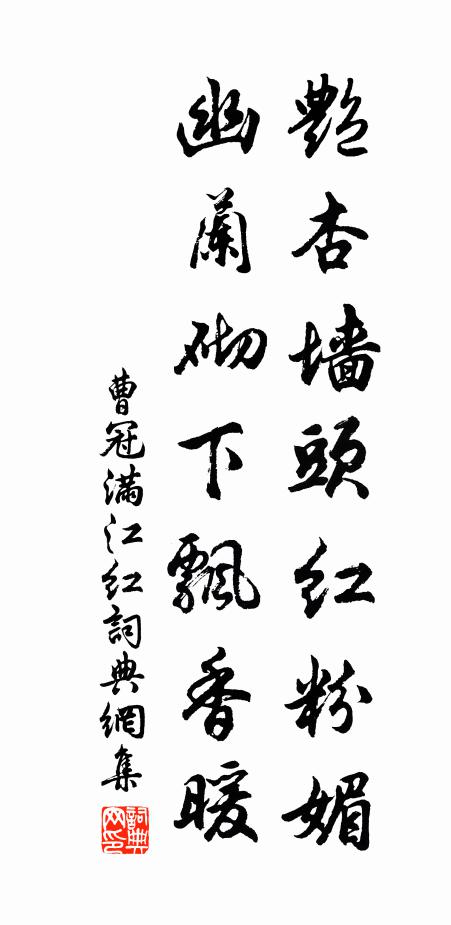 艷杏墙頭红粉媚
幽蘭砌下飄香暖
曹冠满江红詞典網集
詞典网印